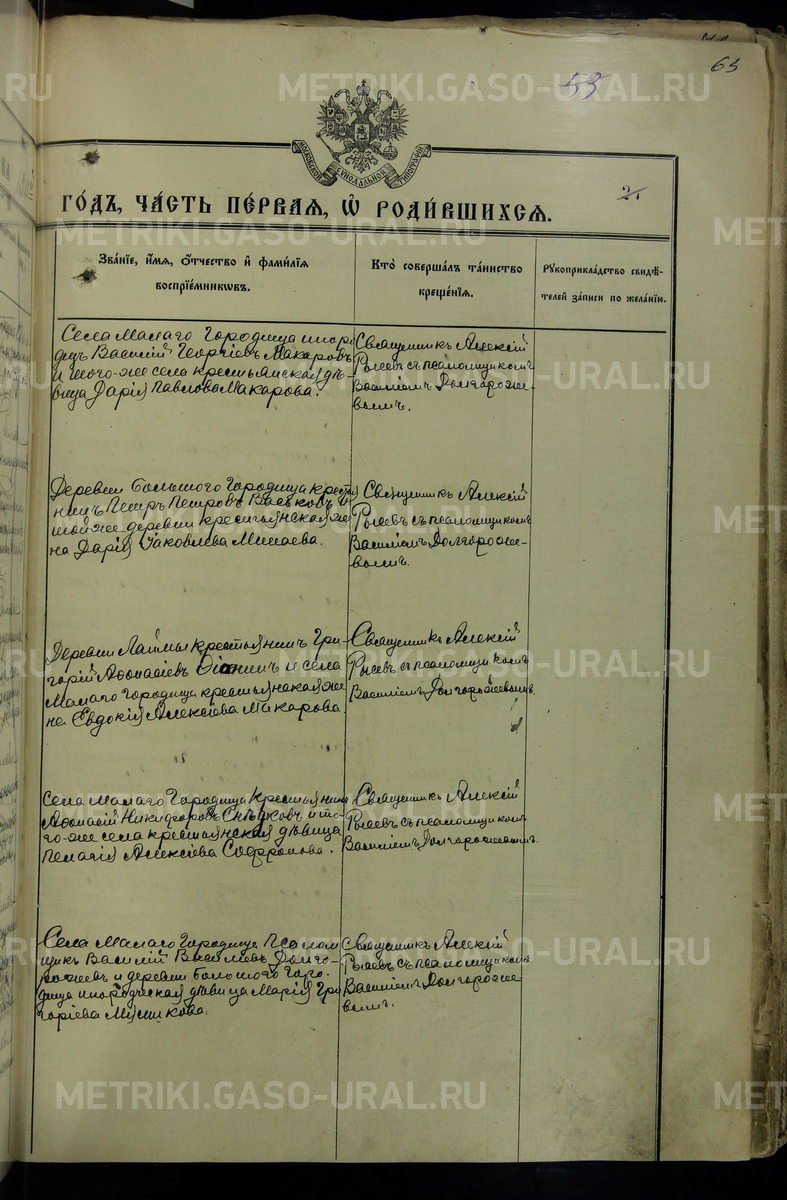 65
53
МОСКОВСКОЙ СѴНОДАЛЬНОЙ ТИПОГРАФІИ
21
ГО́ДЪ, ЧА́СТЬ ПЕ́РВАЯ, Ѡ҆ РОДИ́ВШИХСЯ.
Зва́нїе, и҆́мя, ѻ҆́тчество и҆ фами́лїя
воспрїе́мникѡвъ.
Кто̀ соверша́лъ та́инство
креще́нїя.
Рꙋкоприкла́дство свидѣ́-
телей за́писи по жела́нїю.
Села Малаго Городища иноро-
децъ Василій Георгіевъ Макаровъ
и того-же села крестьянская дѣ-
вица Дарія Павлова Макарова.
Священникъ Алексій
съ псаломщикомъ
Василіемъ Долгороже-
вымъ.
Деревни Большого Городища крестья
нинъ Петръ Петровъ Васьковъ и
той-же деревни крестьянская же
на Дарія Іаковлева Минаева.
Священникъ Алексій
съ псаломщикомъ
Василіемъ Долгороже-
вымъ.
Деревни Лаймы крестьянинъ Гри-
горій Аѳонасіевъ и села
Малаго Городища крестьянская же
на Евдокія Алексіева Макарова
Священникъ Алексій
съ псаломщикомъ
Василіемъ Долгорожевымъ.
Села Малаго Городища Крестьянинъ
Аѳонасій Никифоровъ и то-
го-же села крестьянская дѣвица
Пелагія Алексіева Софронова.
Священникъ Алексій
съ псаломщикомъ
Василіемъ Долгорожевымъ.
Села Малаго Городища Псалом
щикъ Василій Васильевъ Долго-
рожевъ и деревни Большого Горо-
дища инородческая дѣвица Марія Гри
горіева
Священникъ Алексій
съ псаломщикомъ
Василіемъ Долгороже
вымъ.
METRIKI.GASO-URAL.RU